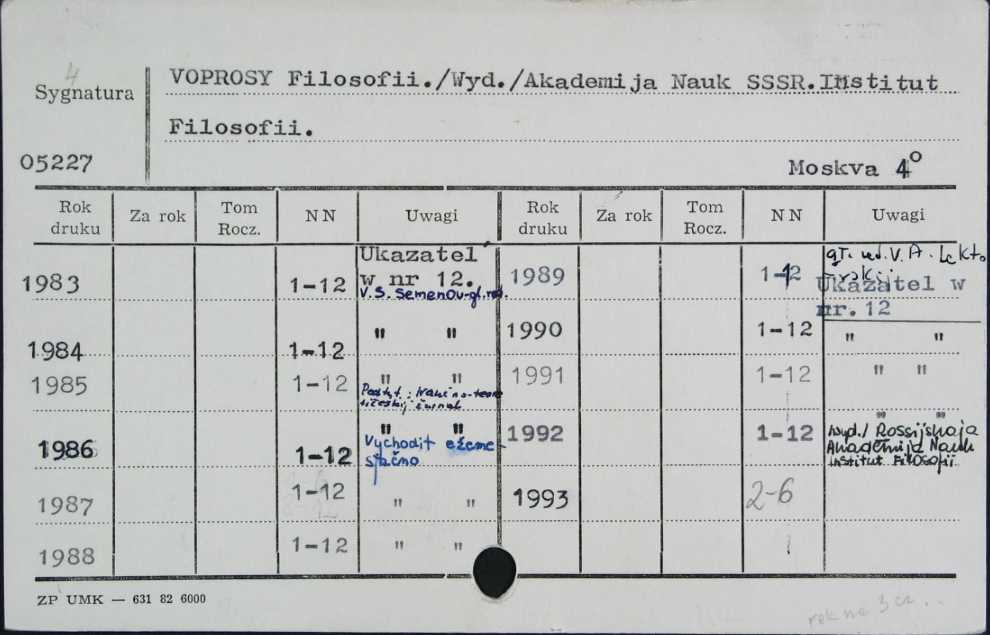 4
Sygnatura
VOPROSY Filosofii./Wyd./Akademija Nauk SSSR.Institut
Filosofii.
05227
Moskva 4°
Rok druku Za rok Tom Rocz. NN Uwagi Rok druku Za rok Tom Rocz. NN Uwagi
1983 1-12 Ukazatel'
w nr 12.
V.S. Semenov-gł. red.
1989 1-12 gł. red. V. A. Lekto
Ukazatel w
nr.12
1984 1-12 " "
1990 1-12 " "
1985 1-12 " "
Podtyt.: Naučno-teore
tičeskij žurnal
1991 1-12 " "
1986 1-12 " "
Vychodit ežeme-
sjačno
1992 1-12 " "
Wyd./ Rossijskaja
Akademija Nauk
Institut Filosofii
1987 1-12 " "
1993 2-6
1988 1-12 " "
ZP UMK — 631 82 6000